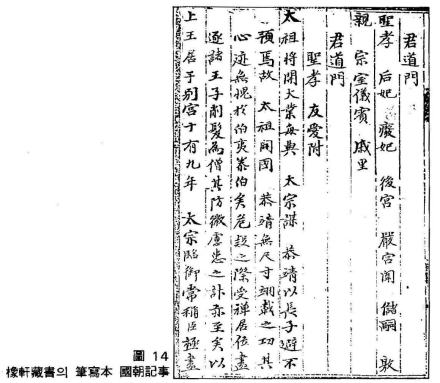 君道門
聖孝 后妃 廢妃 後宮 嚴宮闈 儲嗣 敦
親 宗室儀賓 戚里
君道門
聖孝 友愛附
太祖將開大業每與 太宗謀 恭靖以長子避不
預焉故 太祖開國 恭靖無尺寸翊戴之功其
心迹無愧於伯夷泰伯矣危疑之際受禪居位盡
逐諸王子削髮為僧其防微慮患之計亦至矣以
上王居于別宮十有九年 太宗臨御常稱臣極盡
圖 14
橡軒藏書의 筆寫本 國朝記事